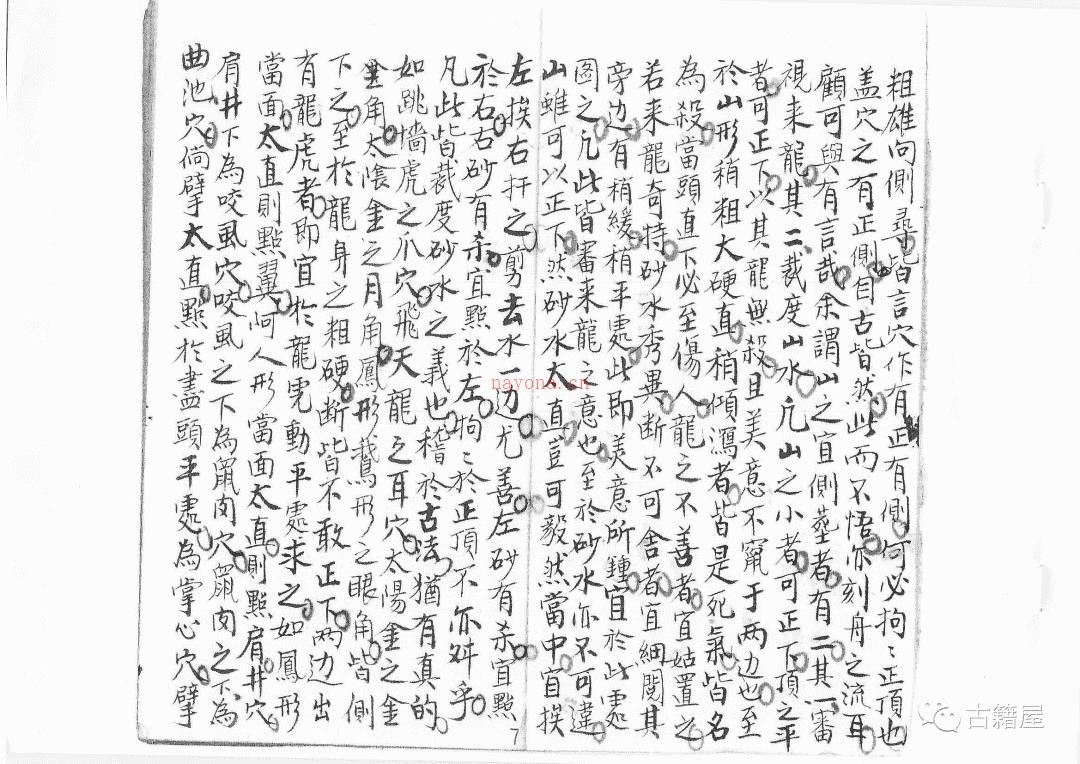 粗雄向側尋皆言穴作有正有側何必拘々正頂也
盖穴之有正側自古皆然此而不悟亦刻舟之流耳
顧可與有言哉余謂山之宜側塟者有二其一審
視来龍其二裁度山水凢山之小者可正下頂之平
者可正下以其龍無殺且美意不竄于两边也至
於山形稍粗大硬直稍傾瀉者皆是死氣皆名
為殺當頭直下必至傷人龍之不善者宜姑置之
若来龍奇特砂水秀異断不可舍者宜細閱其
旁边有稍緩稍平處此即美意所鍾宜於此處
圖之凢此皆審来龍之意也至於砂水亦不可違
山雖可以正下然砂水太直豈可毅然當中宜挨
左挨右扦之剪去水一边尤善左砂有杀宜點
於右右砂有杀宜點於左拘々於正頂不亦舛乎
凡此皆裁度砂水之義也稽於古法猶有真的
如跳墻虎之爪穴飛天龍之耳穴太陽金之金
金角太陰金之月角鳳形鵞形之眼角皆側
下之至於龍身之粗硬断皆不敢正下两边出
有龍虎者即宜於龍虎動平處求之如鳳形
當面太直則點翼阿人形當面太直則點肩井穴
肩井下為咬虱穴咬虱之下為鼠肉穴鼠肉之下為
曲池穴倘臂太直點於盡頭平處為掌心穴臂
7
nayona.cn
古籍屋